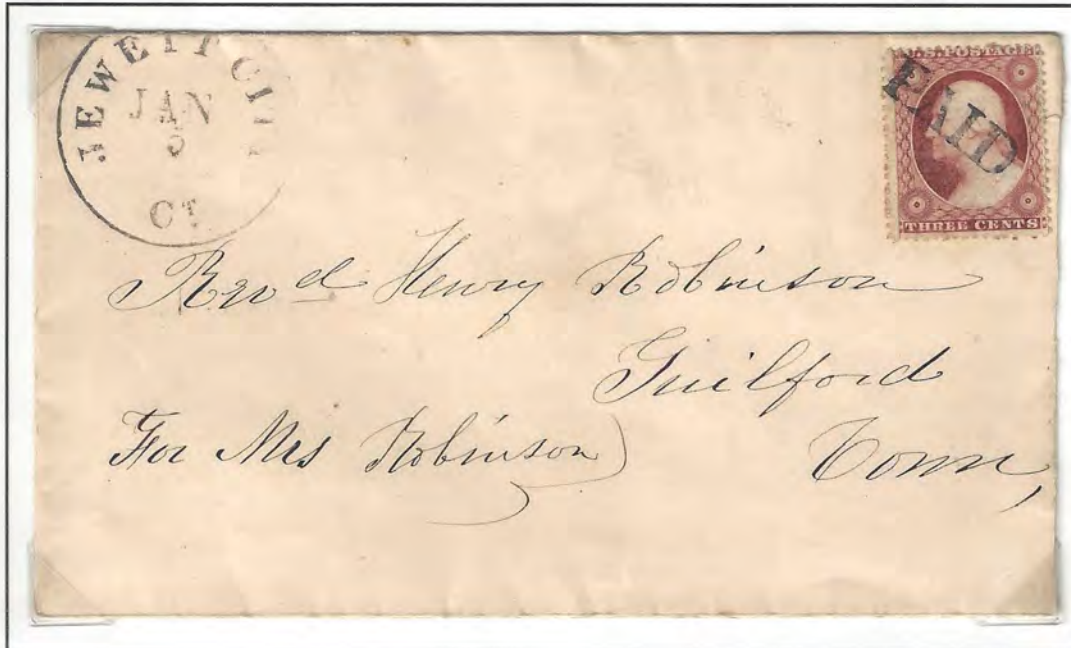 JEWETT CITY
JAN
5
CT
U.S. POSTAGE
PAID
THREE CENTS
Revd Henry Robinson
Guilford
For Mrs Robinson)
Conn,